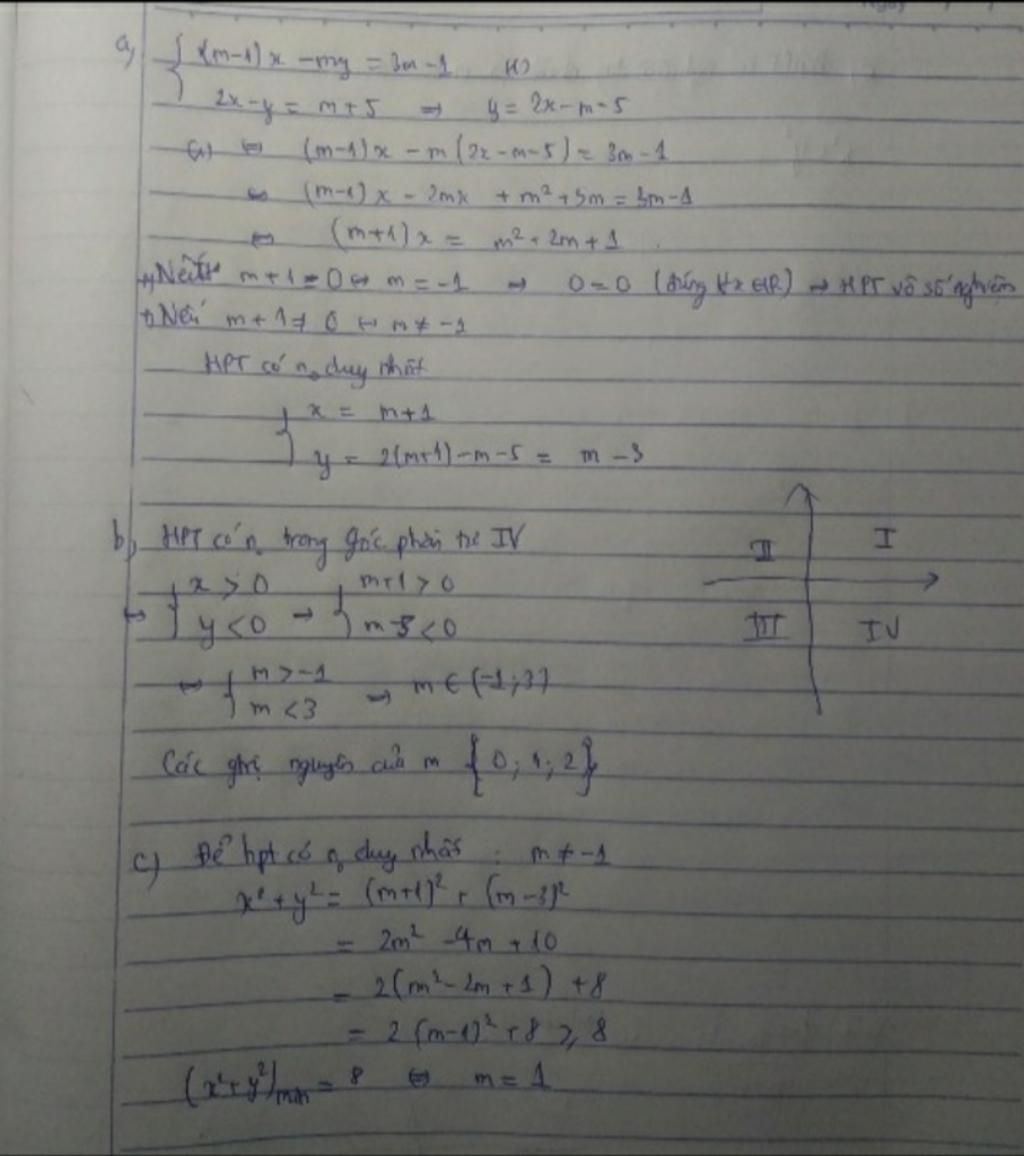 a) { (m-1)x - my = 3m - 1 (1)
2x - y = m + 5 ⇒ y = 2x - m - 5
(1) ⇔ (m-1)x - m(2x - m - 5) = 3m - 1
⇔ (m-1)x - 2mx + m² + 5m = 3m - 1
⇔ (m+1)x = m² + 2m + 1
+) Nếu m + 1 = 0 ⇔ m = -1 ⇒ 0 = 0 (đúng ∀x ∈ R) ⇒ HPT vô số nghiệm
+) Nếu m + 1 ≠ 0 ⇔ m ≠ -1
HPT có n₀ duy nhất
{ x = m + 1
y = 2(m+1) - m - 5 = m - 3
b) HPT có n₀ trong góc phần tư IV
⇔ { x > 0 → { m + 1 > 0
y < 0 m - 3 < 0
⇔ { m > -1 ⇒ m ∈ (-1; 3)
m < 3
II I
III IV
Các gtrị nguyên của m {0; 1; 2}
c) Để hpt có n₀ duy nhất : m ≠ -1
x² + y² = (m+1)² + (m-3)²
= 2m² - 4m + 10
= 2(m² - 2m + 1) + 8
= 2(m-1)² + 8 ≥ 8
(x² + y²)min = 8 ⇔ m = 1